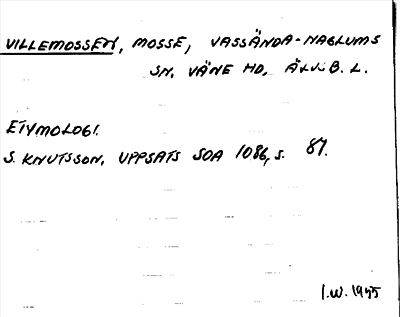 VILLEMOSSEN, MOSSE, VASSÄNDA-NAGLUMS
SN, VÄNE HD, ÄLVSB. L.
ETYMOLOGI.
S. KNUTSSON, UPPSATS SOA 1086, S. 87.
I.W. 1955